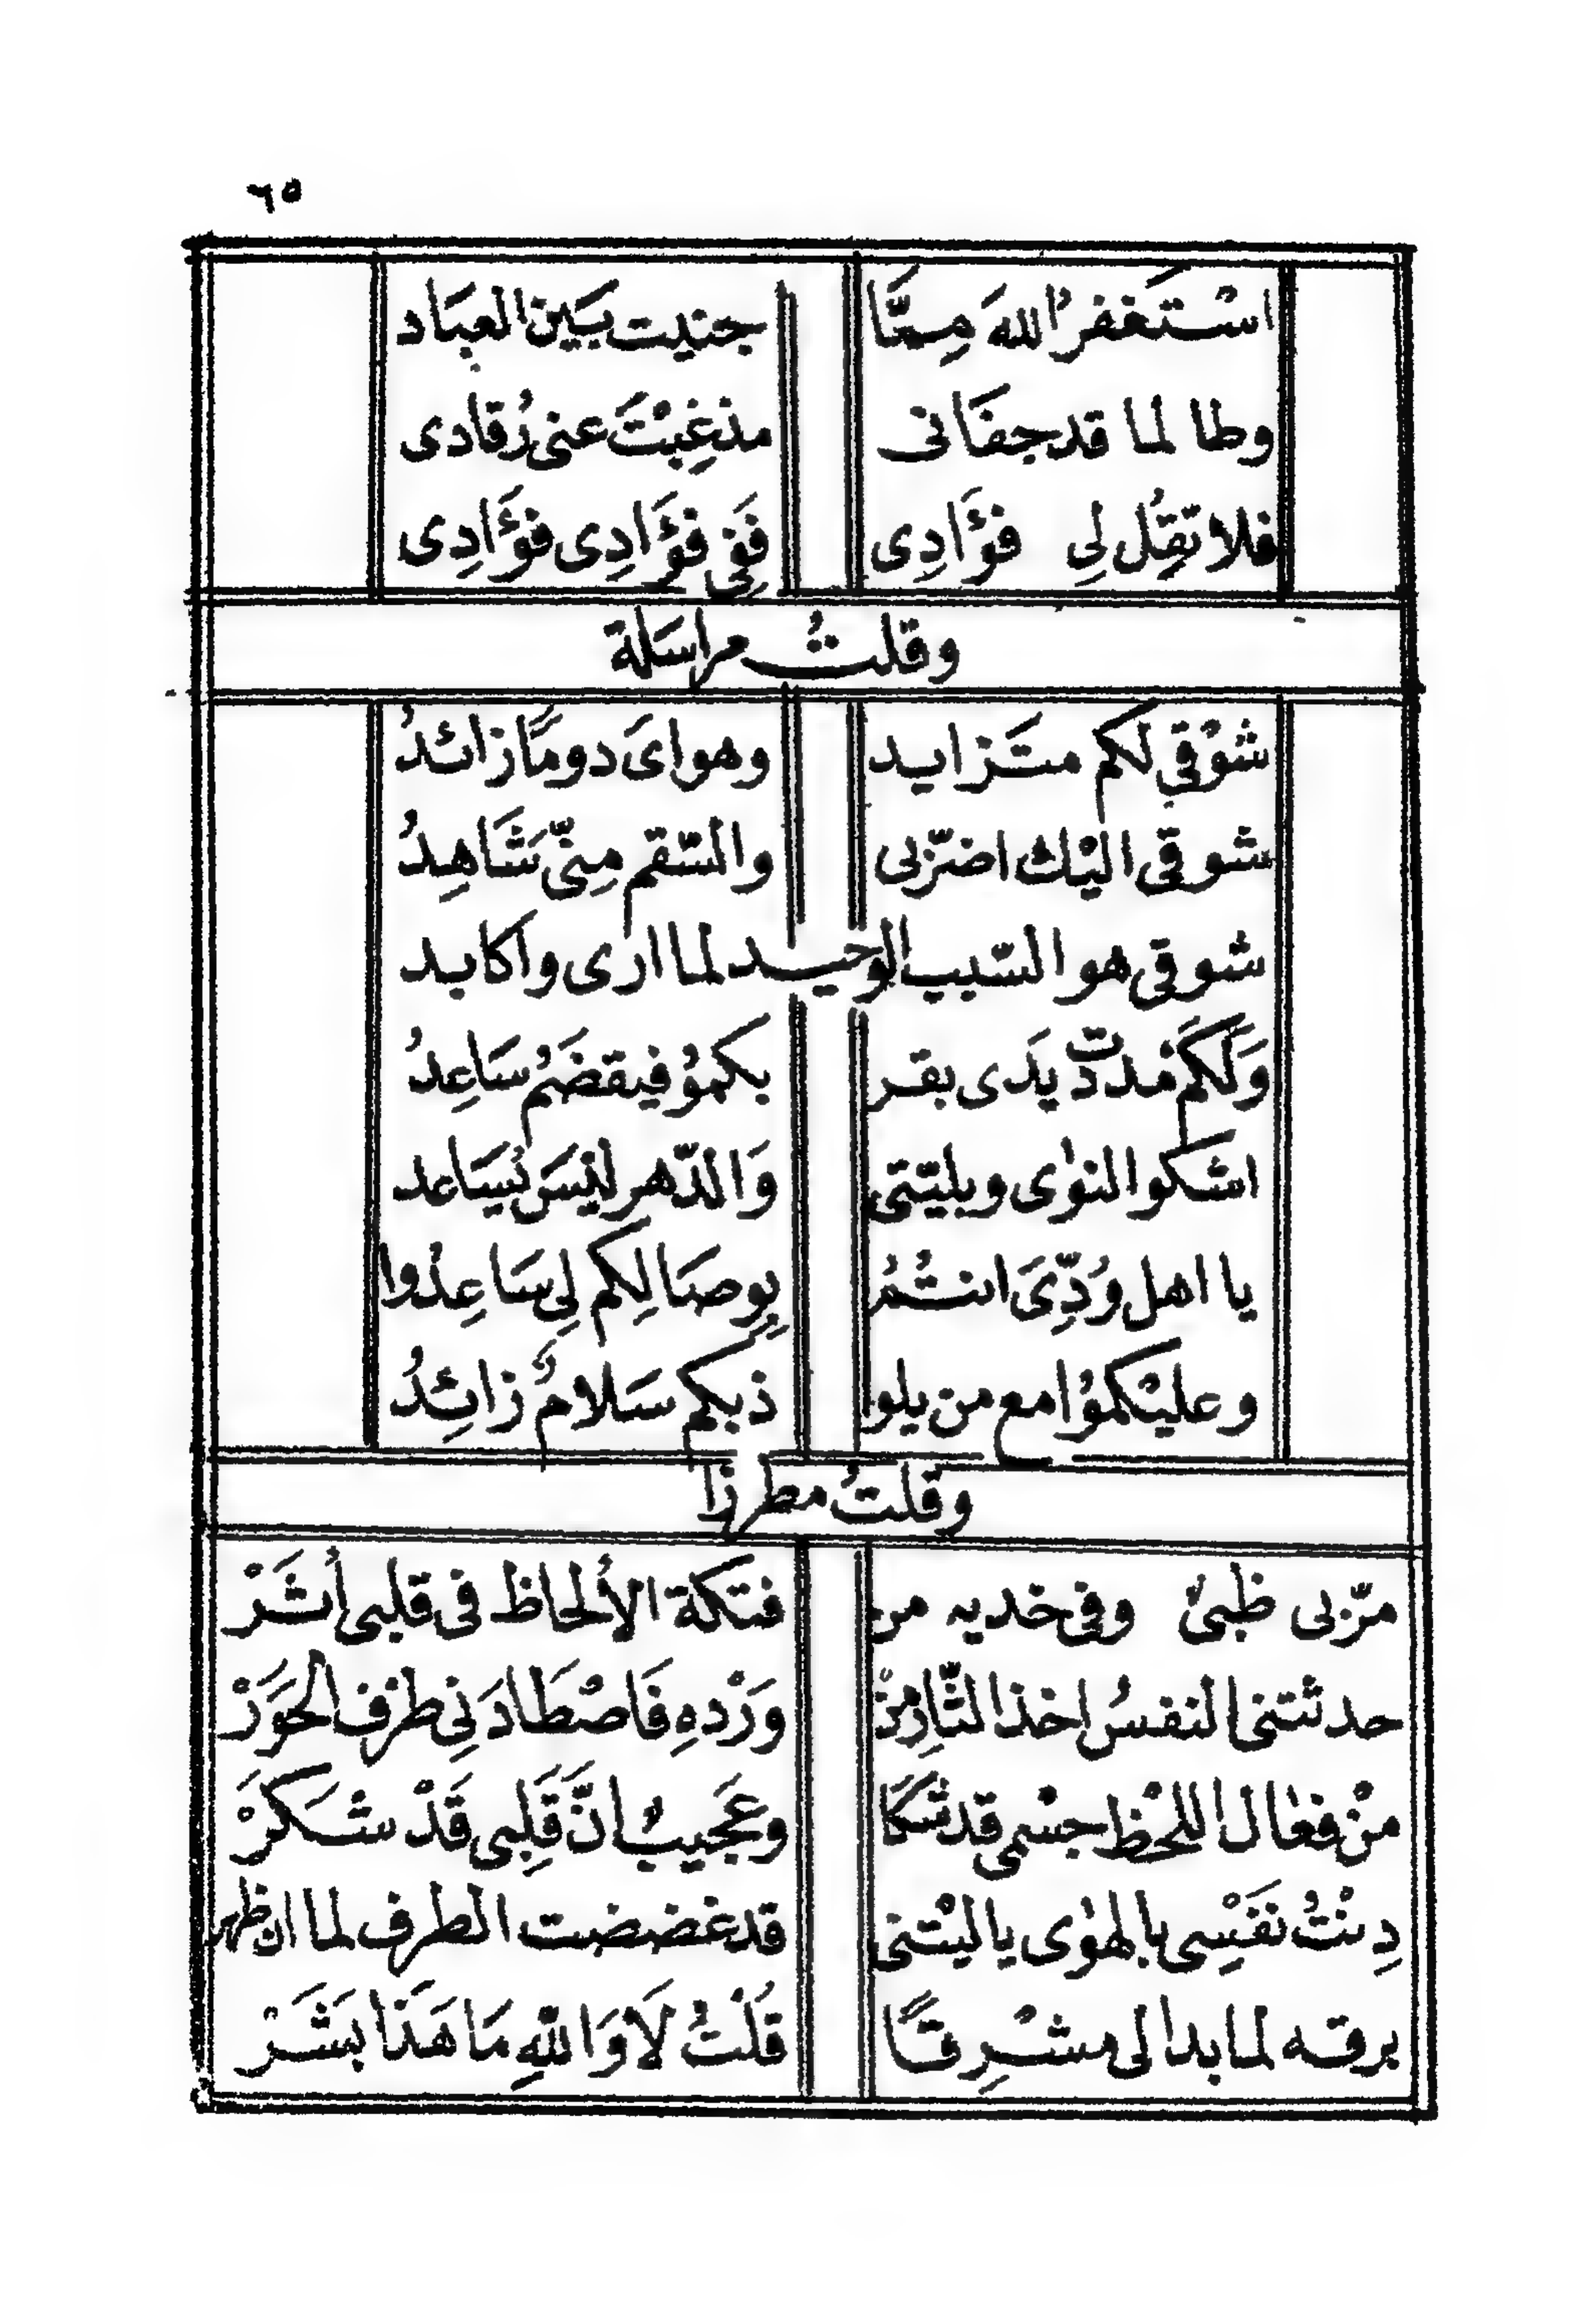 ٦٥
استغفرُ اللهَ مِمَّا جنيت بَين العبَاد
وطالما قد جفَانى مذ غِبْتَ عنى رُقادى
فلا تقُل لِي فؤَادِى فَفِي فؤَادِى فؤَادِى
وقلتُ مراسَلة
شوْقي لكم متَزايد وهواىَ دومًا زائدُ
شوقى اليْك اضرّ بى والسّقم مِنّى شَاهِدُ
شوقى هو السّبب الوحيد لما ارى واكابد
وَلَكَم مُددت يَدى بقر بكموُ فيقضَمُ سَاعِدُ
اشكو النوٰى وبليّتى وَالدّهر ليْسَ يُسَاعد
يا اهل وُدِّىَ انتُمُ بِوِصَالِكم لِى سَاعِدُوا
وعليْكموُا مع من يلو ذ بكم سَلامٌ زائِدُ
وقلتُ مطرزا
مرّ بى ظبىٌ وفى خديه من فتكة الألحاظ فى قلبى أثَرْ
حدثتنى النفسُ اخذ الثّارِ مِنْ وَرْدهِ فَاصْطَادَنِى طرْف الحَوَرْ
منْ فعٰال اللحْظ جسْمى قد شكَا وعَجيبٌ انَّ قَلِبى قَدْ شَكَرْ
دِنْتُ نفَسِى بالهوٰى يا ليْتنى قد غضضت الطرف لما ان ظهر
برقه لما بدا لى مشْرِقًا قُلْتُ لَا وَاللهِ مَا هَذَا بَشَرْ